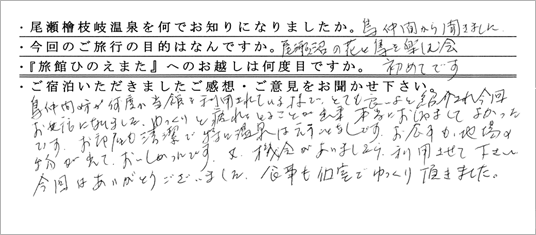 ・尾瀬檜枝岐温泉を何でお知りになりましたか。鳥仲間から聞きました
・今回のご旅行の目的はなんですか。尾瀬沼の花と鳥を楽しむ会
・『旅館ひのえまた』へのお越しは何度目ですか。初めてです
・ご宿泊いただきましたご感想・ご意見をお聞かせ下さい。
鳥仲間が何度か当館を利用されているそうで、とても良いよと紹介され今回
お世話になりました。ゆっくりと疲れをとることが出来本当におじゃましてよかった
です。お部屋も清潔で特に温泉は
が出て、おいしかったです。又、機会がありましたら、利用させて下さい
今回はありがとうございました。食事も個室でゆっくり頂きました。